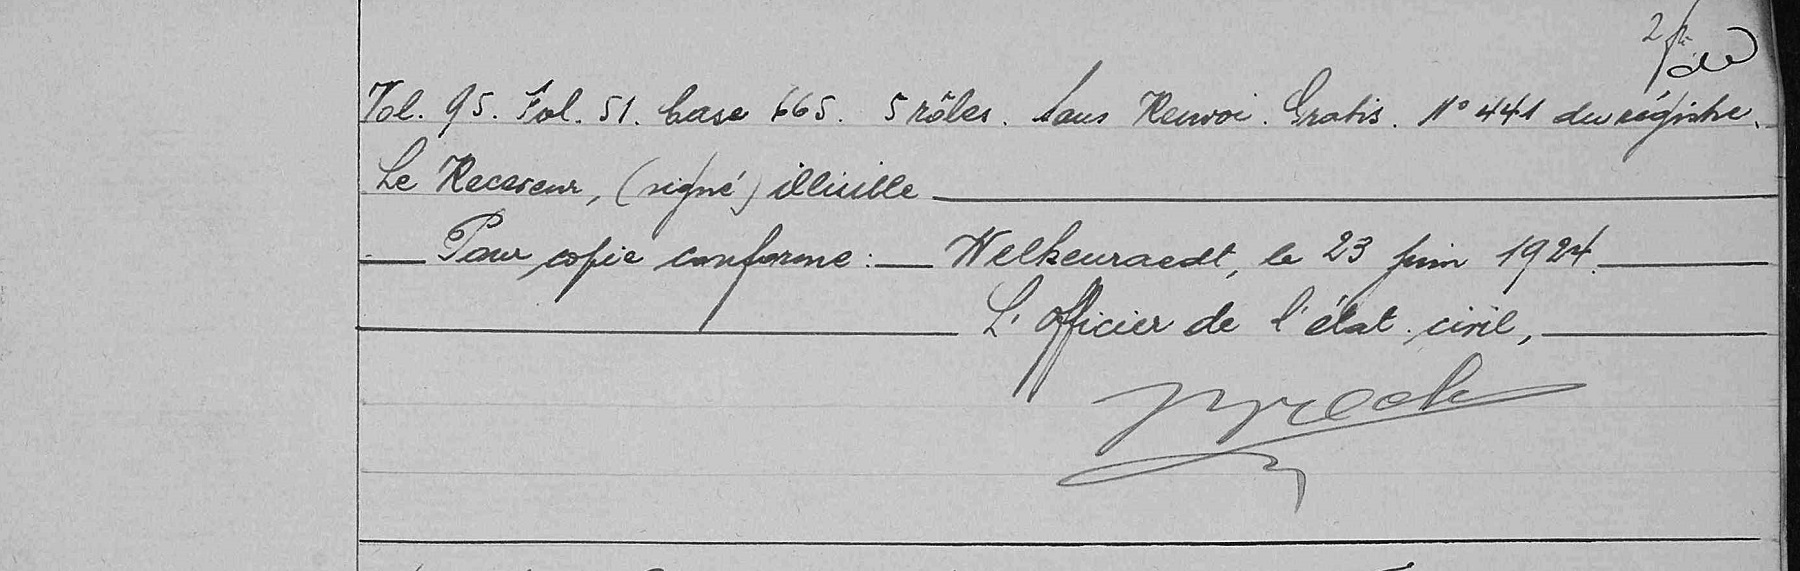 Vol. 95. Fol. 51. Case 665. 5 rôles. Sans Renvoi. Gratis. N° 441 du régistre.
Le Receveur, (signé) illisible
Pour copie conforme: Welkenraedt, le 23 juin 1924.
L'officier de l'état civil,